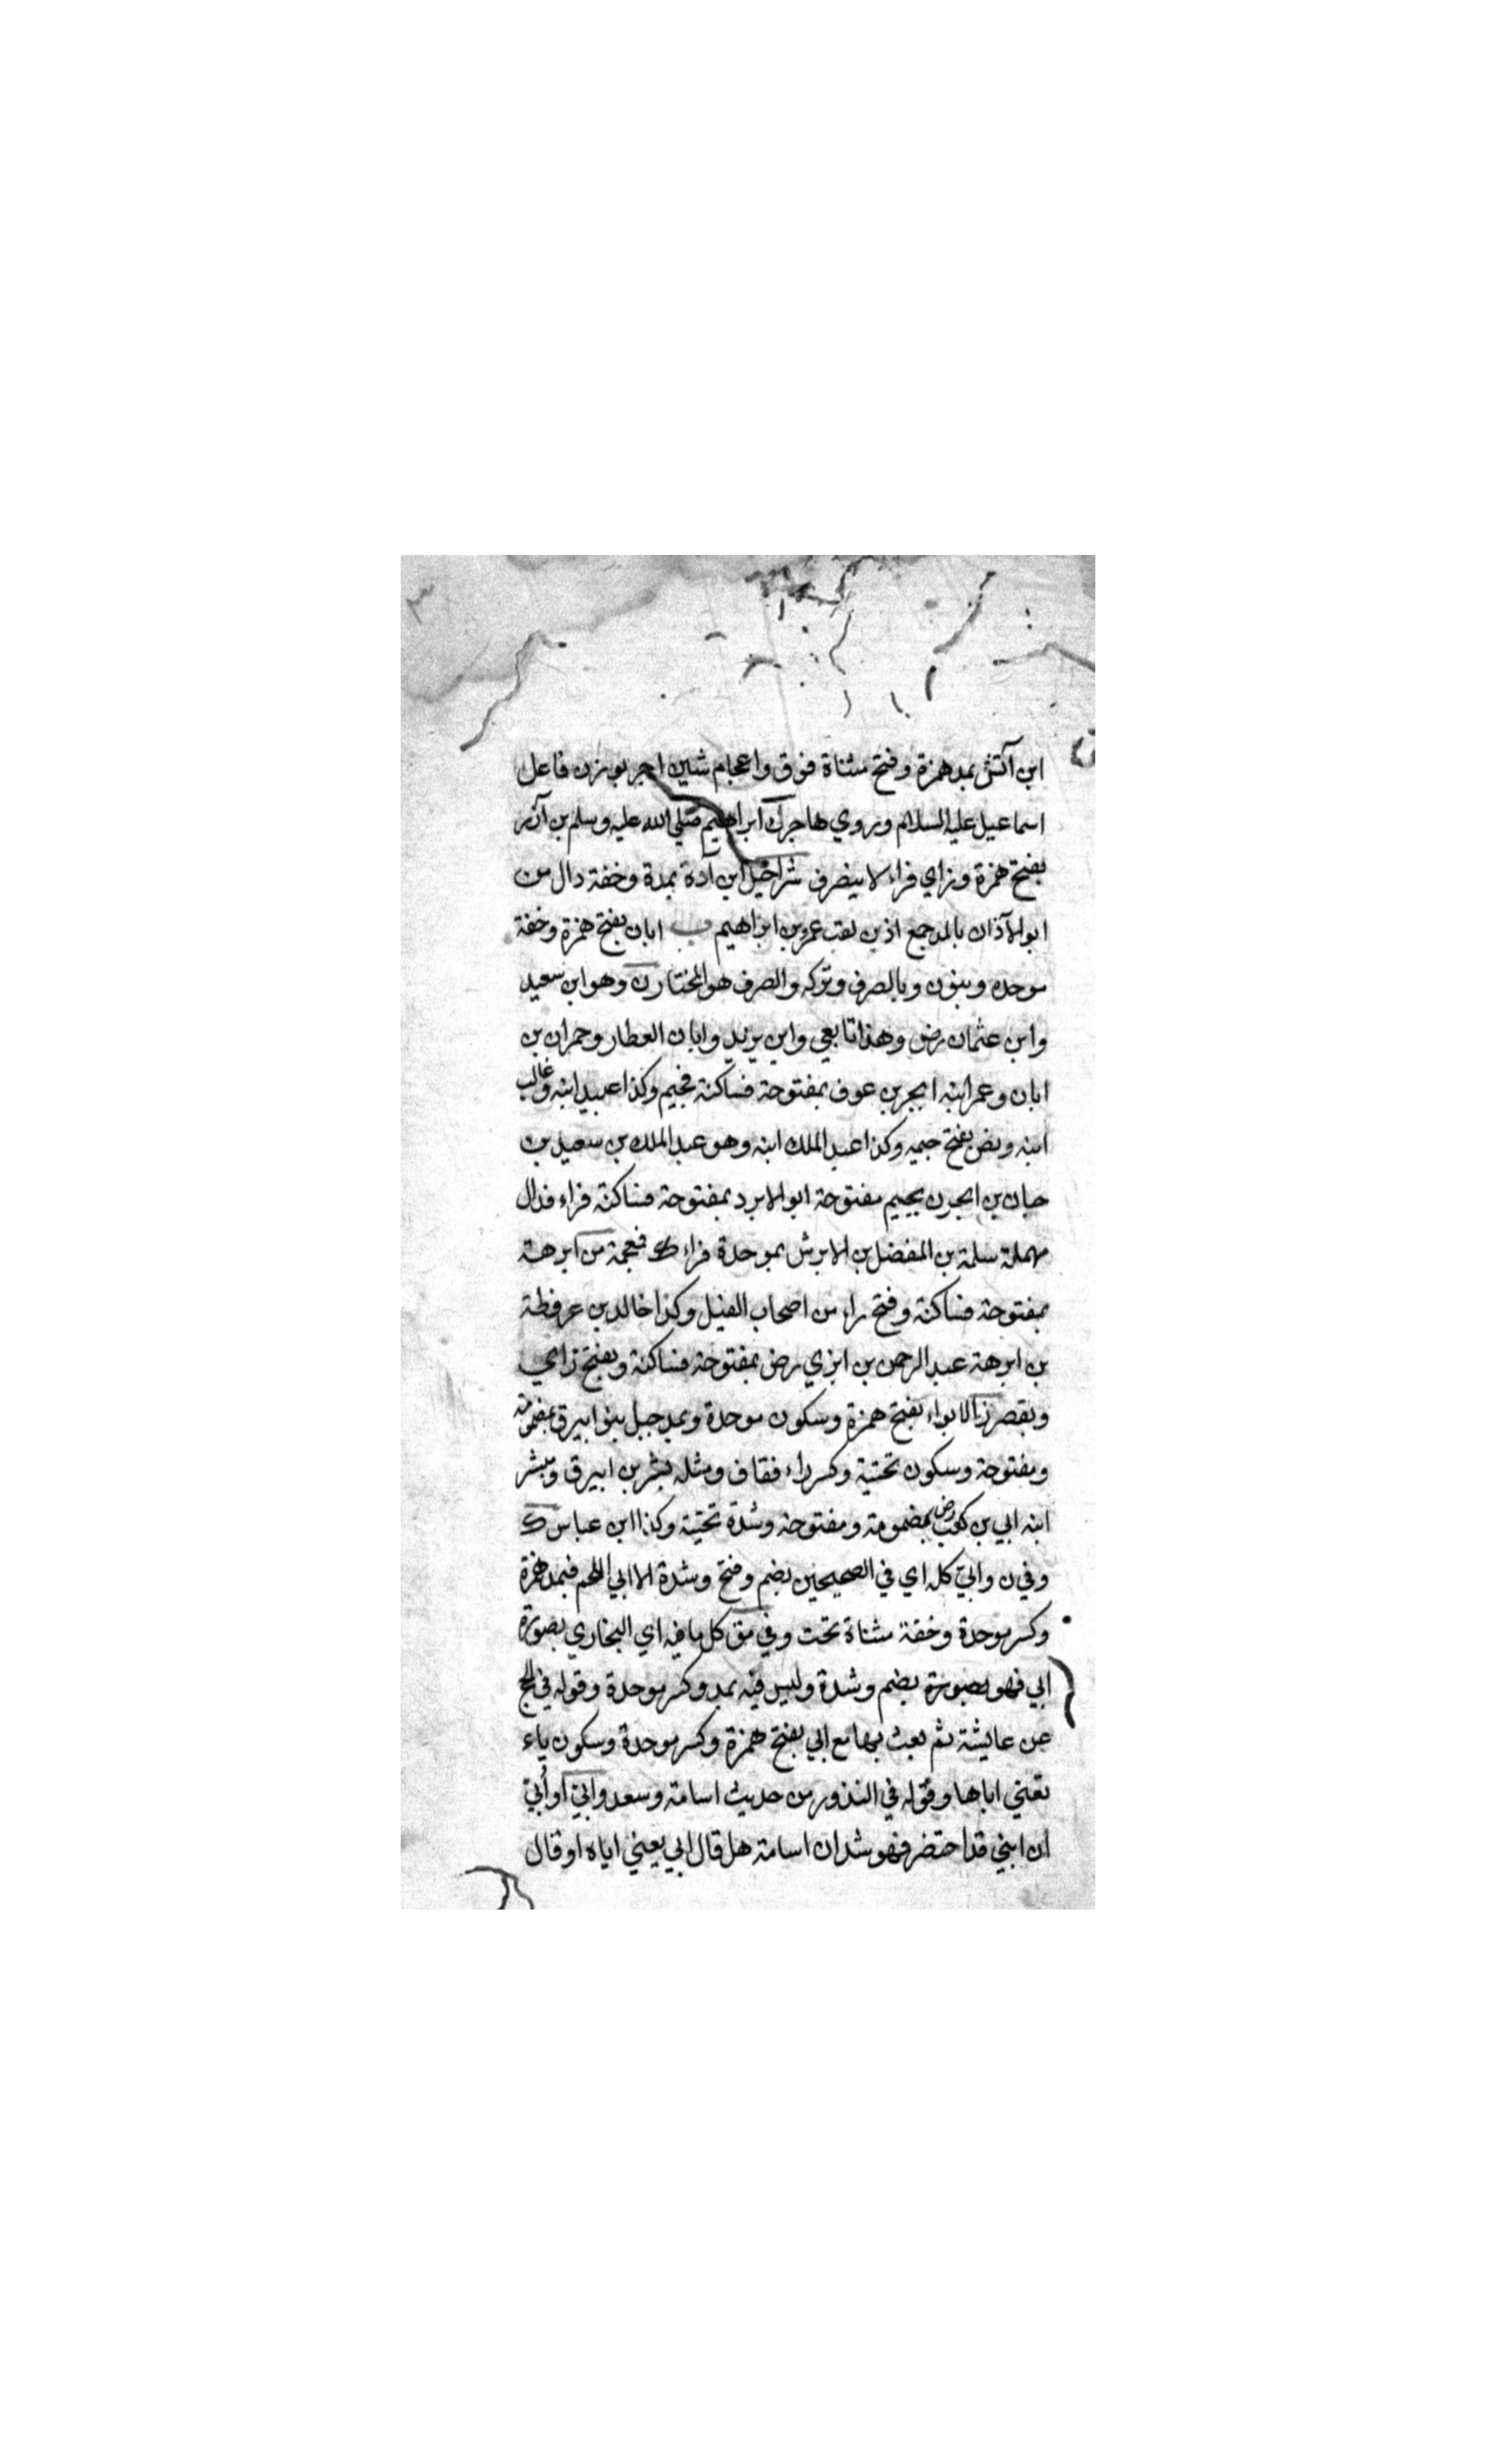 ابن آتش بمد همزة وفتح مثناة فوق واعجام شين اجر بوزن فاعل
اسماعيل عليه السلام وروي هاجرك ابراهيم صلى الله عليه وسلم بن آزر
بفتح همزة وزاي فراء لا ينصرف شراحيل ابن آدة بمدة وخفة دال من
ابو الآذان بالمد جمع اذن لقب عمر بن ابراهيم ب ابان بفتح همزة وخفة
موحده وبنون وبالصرف وتركه والصرف هو المختار ن وهو ابن سعيد
وابن عثمان رض وهذا تابعي وابن يزيد وابان العطار وحمران بن
ابان وعمر ابنه ابجر بن عوف بمفتوحة فساكنة فجيم وكذا عبيد ابنه وغالب
ابنه وبفتح جيمه وكذا عبد الملك ابنه وهو عبد الملك بن سعيد بن
حبان بن ابجر ن بجيم مفتوحة ابو الابرد بمفتوحة فساكنة فراء فدال
مهملة سلمة بن المفضل بن الابرش بموحدة فراء ك فمعجمة من ابرهة
بمفتوحة فساكنة وفتح راء من اصحاب الفيل وكذا خالد بن عرفطة
بن ابرهة عبد الرحمن بن ابزي رض بمفتوحة فساكنة وبفتح زاي
وبقصر ز الابواء بفتح همزة وسكون موحدة وبمد جبل بنو ابيرق بمضمومة
ومفتوحة وسكون تحتية وكسر راء فقاف ومثله بشر بن ابيرق ومبشر
ابنه ابي بن كعب رض بمضمومة ومفتوحة وشدة تحتية وكذا ابن عباس ك
وفي ن وابي كله اي في الصحيحين بضم وفتح وشدة الا ابي اللحم فبمد همزة
وكسر موحدة وخفة مثناة تحت وفي مق كل ما فيه اي البخاري بصورة
ابي فهو بصورة بضم وشدة وليس فيه بمد وكسر موحدة وقوله في الحج
عن عايشة ثم بعث بها مع ابي بفتح همزة وكسر موحدة وسكون ياء
تعني اباها وقوله في النذور من حديث اسامة وسعد وابي او أبي
ان ابني قد احتضر فهو شد ان اسامة هل قال ابي يعني اباه او قال